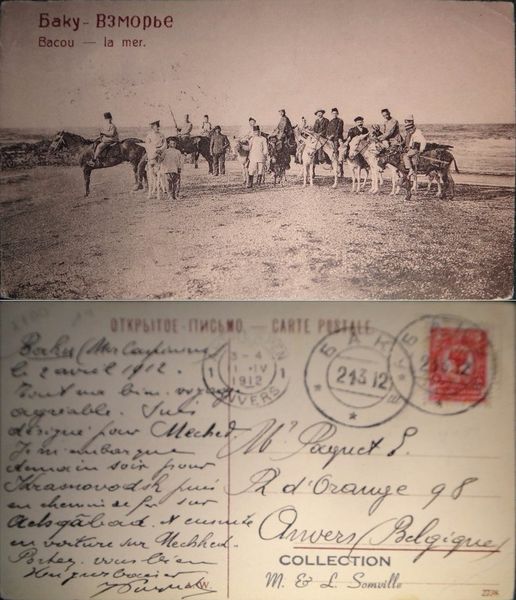 Баку - Взморье
Bacou — la mer.
ОТКРЫТОЕ ПИСЬМО. — CARTE POSTALE
Baku (Mer Caspienne)
le 2 avril 1912.
Tout va bien. voyage
agréable. Suis
désigné pour Meched.
J'm'embarque
demain soir pour
Krasnovodsk puis
en chemin de fer sur
Achgabad. et ensuite
en voiture sur Meched.
vous bien
3-4
1 IV 1
1912
ANVERS
БАКУ
21 3 12
БАКУ
21 3 12
Mr Paquet E.
R. d'Orange 98
Anvers (Belgique)
COLLECTION
M. & L. Somville